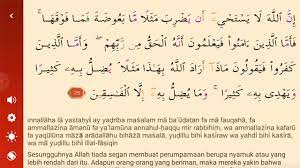 إِنَّ ٱللَّهَ لَا يَسْتَحْىِۦٓ أَن يَضْرِبَ مَثَلًا مَّا بَعُوضَةً فَمَا فَوْقَهَا ۚ
فَأَمَّا ٱلَّذِينَ ءَامَنُوا۟ فَيَعْلَمُونَ أَنَّهُ ٱلْحَقُّ مِن رَّبِّهِمْ ۖ وَأَمَّا ٱلَّذِينَ
كَفَرُوا۟ فَيَقُولُونَ مَاذَآ أَرَادَ ٱللَّهُ بِهَـٰذَا مَثَلًا ۘ يُضِلُّ بِهِۦ كَثِيرًا
وَيَهْدِى بِهِۦ كَثِيرًا ۚ وَمَا يُضِلُّ بِهِۦٓ إِلَّا ٱلْفَـٰسِقِينَ 26
innallāha lā yastaḥyī ay yaḍriba maṡalam mā ba'ụḍatan fa mā fauqahā, fa
ammallażīna āmanụ fa ya'lamụna annahul-ḥaqqu mir rabbihim, wa ammallażīna kafarụ
fa yaqụlụna māżā arādallāhu bihāżā maṡalā, yuḍillu bihī kaṡīraw wa yahdī bihī kaṡīrā,
wa mā yuḍillu bihī illal-fāsiqīn
Sesungguhnya Allah tiada segan membuat perumpamaan berupa nyamuk atau yang
lebih rendah dari itu. Adapun orang-orang yang beriman, maka mereka yakin bahwa